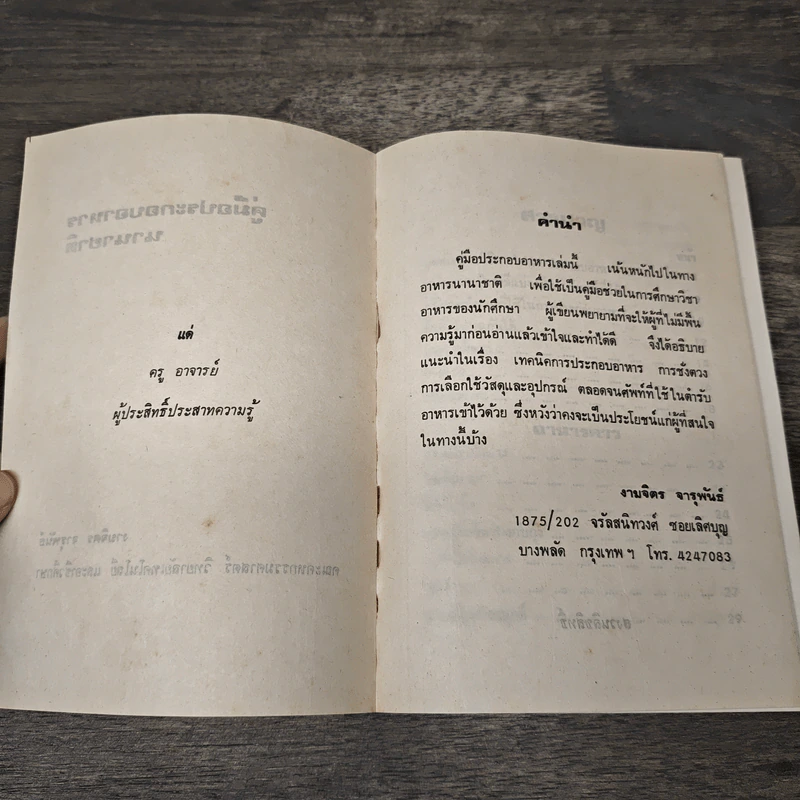 แด่
ครู อาจารย์
ผู้ประสิทธิ์ประสาทความรู้
คำนำ
คู่มือประกอบอาหารเล่มนี้ เน้นหนักไปในทาง
อาหารนานาชาติ เพื่อใช้เป็นคู่มือช่วยในการศึกษาวิชา
อาหารของนักศึกษา ผู้เขียนพยายามที่จะให้ผู้ที่ไม่มีพื้น
ความรู้มาก่อนอ่านแล้วเข้าใจและทำได้ดี จึงได้อธิบาย
แนะนำในเรื่อง เทคนิคการประกอบอาหาร การชั่งตวง
การเลือกใช้วัสดุและอุปกรณ์ ตลอดจนศัพท์ที่ใช้ในตำรับ
อาหารเข้าไว้ด้วย ซึ่งหวังว่าคงจะเป็นประโยชน์แก่ผู้ที่สนใจ
ในทางนี้บ้าง
งามจิตร จารุพันธ์
1875/202 จรัลสนิทวงศ์ ซอยเลิศบุญ
บางพลัด กรุงเทพฯ โทร. 4247083